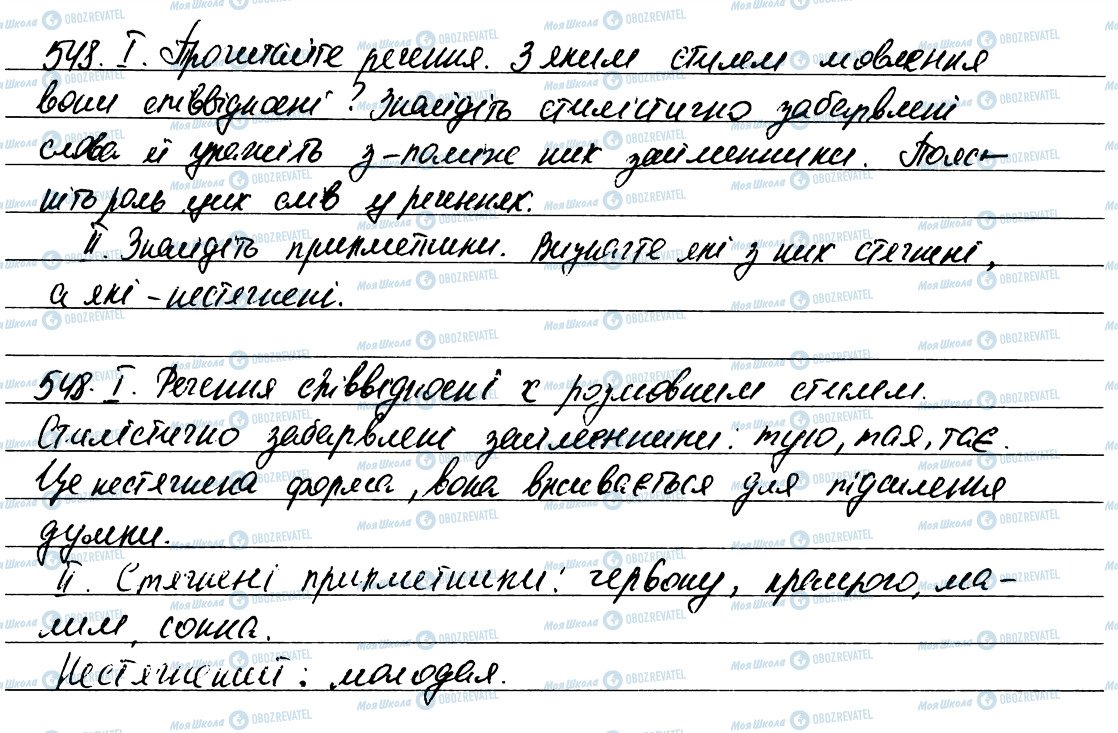 548. І. Прочитайте речення. З яким стилем мовлення
вони співвідносні? Знайдіть стилістично забарвлені
слова й укажіть з-поміж них займенники. Пояс-
ніть роль цих слів у реченнях.
ІІ. Знайдіть прикметники. Визначте які з них стягнені,
а які - нестягнені.
548. І. Речення співвідносні х розмовним стилем.
Стилістично забарвлені займенники: тую, тая, тає.
Це нестягнена форма, вона вживається для підсилення
думки.
ІІ. Стягнені прикметники: червону, кращого, ма-
лим, сонна.
Нестягнений: молодая.